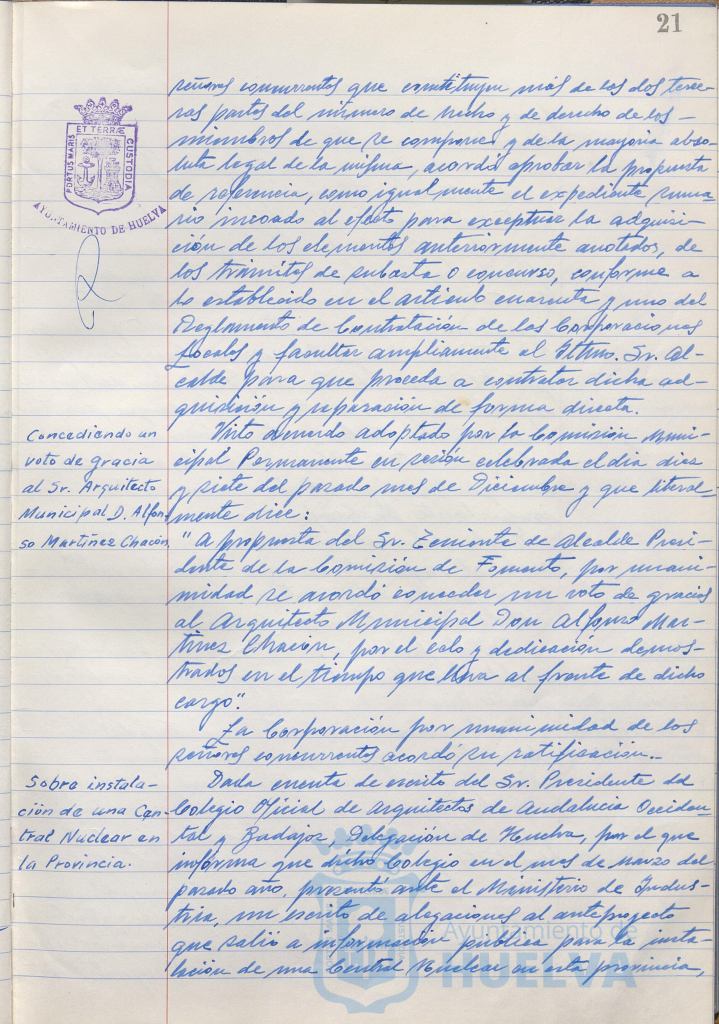 21
señores concurrentes que constituyen más de las dos terce-
ras partes del número de hecho y de derecho de los
miembros de que se compone y de la mayoría abso-
luta legal de la misma, acordó aprobar la propuesta
de referencia, como igualmente el expediente suma-
rio incoado al efecto para exceptuar la adquisi-
ción de los elementos anteriormente anotados, de
los trámites de subasta o concurso, conforme a
lo establecido en el artículo cuarenta y uno del
Reglamento de Contratación de las Corporaciones
Locales y facultar ampliamente al Iltmo. Sr. Al-
calde para que proceda a contratar dicha ad-
quisición y reparación de forma directa.
PORTUS MARIS ET TERRÆ CUSTODIA
AYUNTAMIENTO DE HUELVA
Concediendo un
voto de gracia
al Sr. Arquitecto
Municipal D. Alfon-
so Martínez Chacón.
Visto acuerdo adoptado por la Comisión Muni-
cipal Permanente en sesión celebrada el día diez
y siete del pasado mes de Diciembre y que literal-
mente dice:
"A propuesta del Sr. Teniente de Alcalde Presi-
dente de la Comisión de Fomento, por unani-
midad se acordó conceder un voto de gracias
al Arquitecto Municipal Don Alfonso Mar-
tínez Chacón, por el celo y dedicación demos-
trados en el tiempo que lleva al frente de dicho
cargo".
La Corporación por unanimidad de los
señores concurrentes acordó su ratificación.-
Sobre instala-
ción de una Cen-
tral Nuclear en
la Provincia.
Dada cuenta de escrito del Sr. Presidente del
Colegio Oficial de Arquitectos de Andalucía Occiden-
tal y Badajoz, Delegación de Huelva, por el que
informa que dicho Colegio en el mes de Marzo del
pasado año, presentó ante el Ministerio de Indus-
tria, un escrito de alegaciones al anteproyecto
que salió a información pública para la insta-
lación de una Central Nuclear en esta provincia,
Ayuntamiento de
HUELVA